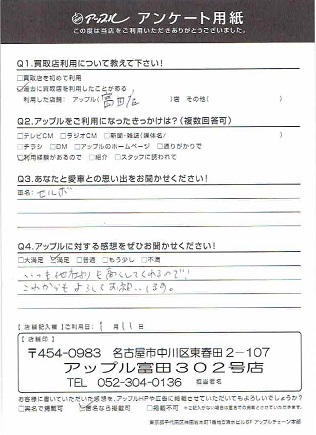 アップル アンケート用紙
この度は当店をご利用いただきありがとうございました。
Q1.買取店利用について教えて下さい!
□買取店を初めて利用
☑過去に買取店を利用したことがある
利用した店舗: アップル(富田店)店 その他( )
Q2.アップルをご利用になったきっかけは?(複数回答可)
□テレビCM □ラジオCM □新聞・雑誌(媒体名/ )
□チラシ □DM □アップルのホームページ □通りがかりで
☑利用経験があるので □紹介 □スタッフに誘われて
Q3.あなたと愛車との思い出をお聞かせください!
車名: セルボ
Q4.アップルに対する感想をぜひお聞かせください!
□大満足 ☑満足 □普通 □もう少し □不満
いつも他社よりも高くしてくれるので!
これからもよろしくお願いします。
【店舗記入欄】ご利用日: 1月11日
【店舗印】
〒454-0983 名古屋市中川区東春田2-107
アップル富田302号店
TEL 052-304-0136 担当者名
お客様に書いていただいた感想を、アップルHPや広告に掲載させていただいてもよろしいでしょうか?
□実名で掲載可 ☑匿名なら掲載可 □掲載不可 ※ご記入がない場合は匿名での掲載とさせていただきます。